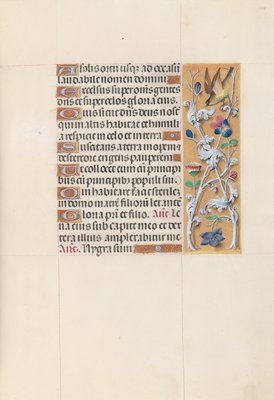 A solis ortu usque ad occasū
laudabile nomen domini
Excelsus super om̄s gentes
dn̄s et super celos gloria eius.
Quis sicut dn̄s deus nost̄
qui in altis habitat et humili
a respicit in celo et in terra
Suscitans a terra inopem et
de stercore erigens pauperem
Ut collocet eum cū principi
bus cū principibꝰ populi sui
Qui habitare facit sterilez
in domo matrē filiorū letantē
Gloria pr̄i et filio. An̄e. Le
ua eius sub capite meo et dex
tera illius amplexabitur me
An̄e. Nygra sum